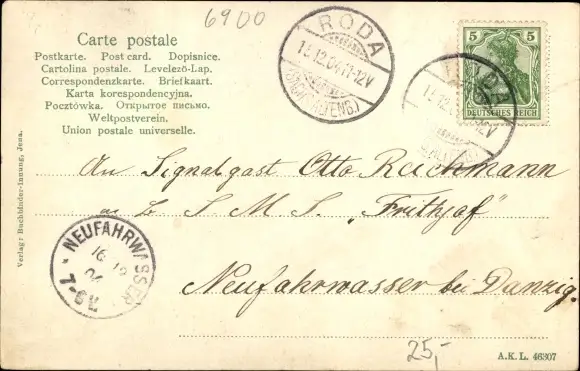 6900
Carte postale
Postkarte. Post card. Dopisnice.
Cartolina postale. Levelező-Lap.
Correspondenzkarte. Briefkaart.
Karta korespondencyjna.
Pocztówka. Открытое письмо.
Weltpostverein.
Union postale universelle.
RODA
13.12.04.11-12V
5 5
DEUTSCHES REICH
An Signalgast Otto Reichmann
a. B. S. M. S. „Frithjof"
Neufahrwasser bei Danzig.
NEUFAHRWASSER
16 12
04
7-8V.
Verlag: Buchbinder-Innung, Jena.
25,-
A.K.L. 46307